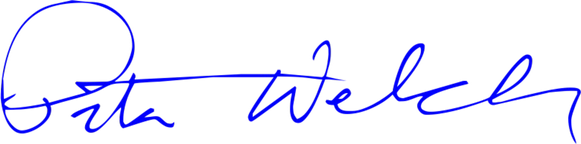 Peter Welch